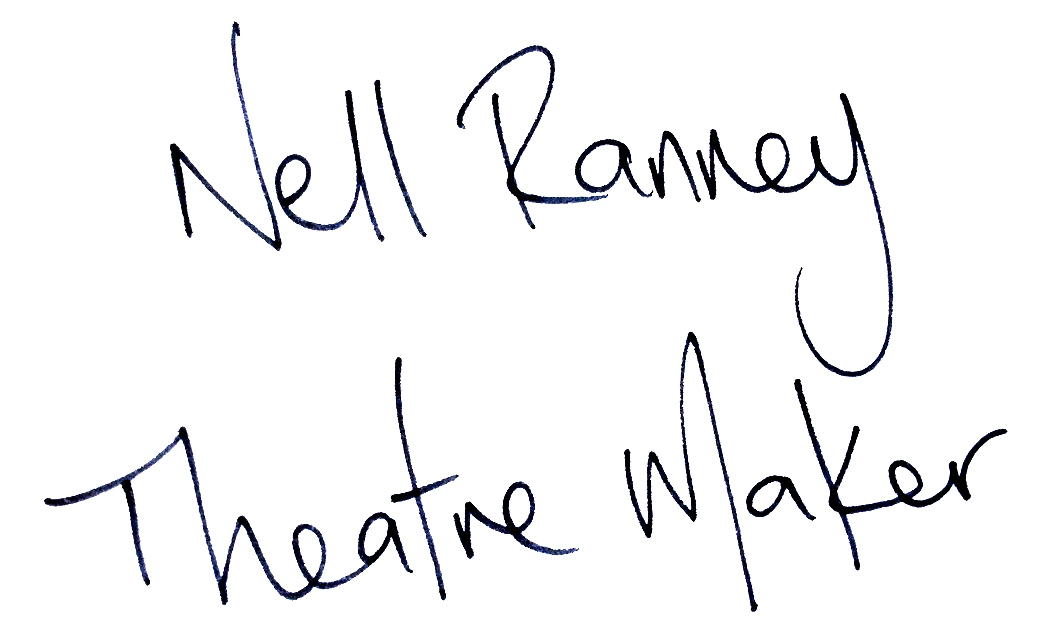 Nell Ranney
Theatre Maker